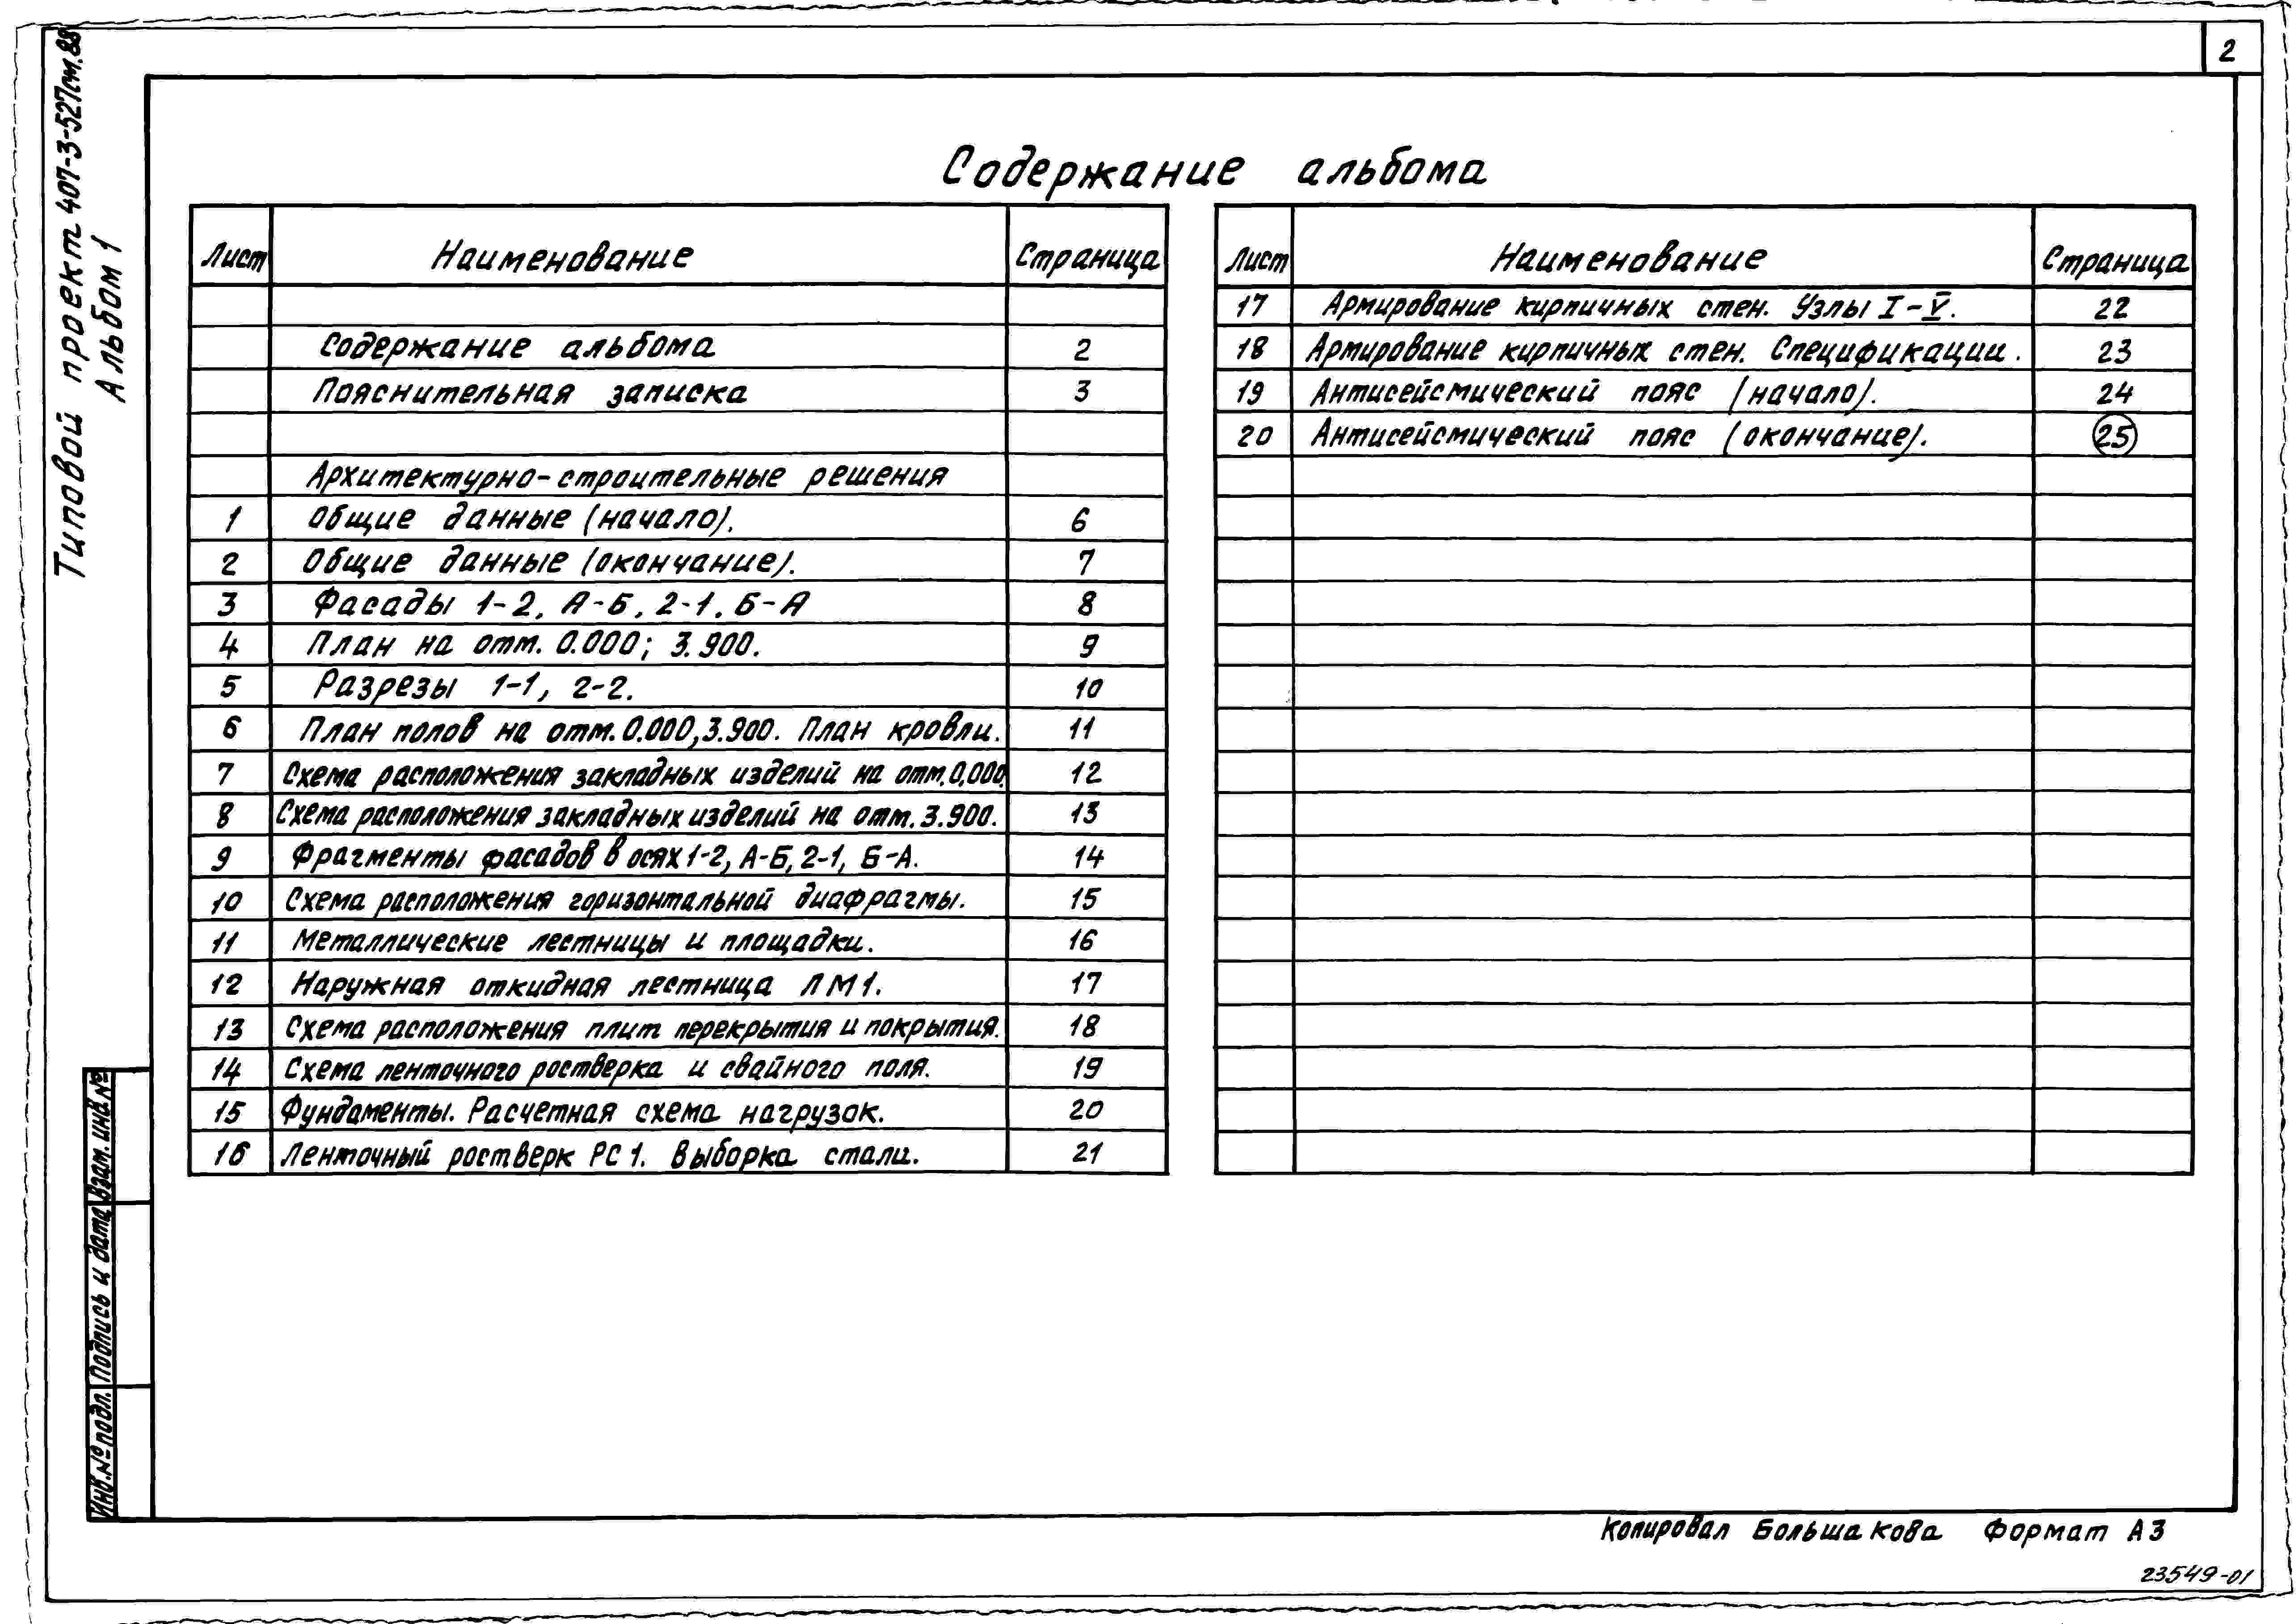 2
Типовой проект 407-3-527см.88
Альбом 1
Содержание альбома
Лист Наименование Страница
Содержание альбома 2
Пояснительная записка 3
Архитектурно-строительные решения
1 Общие данные (начало). 6
2 Общие данные (окончание). 7
3 Фасады 1-2, А-Б, 2-1, Б-А 8
4 План на отм. 0.000; 3.900. 9
5 Разрезы 1-1, 2-2. 10
6 План полов на отм. 0.000, 3.900. План кровли. 11
7 Схема расположения закладных изделий на отм. 0,000. 12
8 Схема расположения закладных изделий на отм. 3.900. 13
9 Фрагменты фасадов в осях 1-2, А-Б, 2-1, Б-А. 14
10 Схема расположения горизонтальной диафрагмы. 15
11 Металлические лестницы и площадки. 16
12 Наружная откидная лестница ЛМ1. 17
13 Схема расположения плит перекрытия и покрытия. 18
14 Схема ленточного ростверка и свайного поля. 19
15 Фундаменты. Расчетная схема нагрузок. 20
16 Ленточный ростверк РС1. Выборка стали. 21
Лист Наименование Страница
17 Армирование кирпичных стен. Узлы I-V. 22
18 Армирование кирпичных стен. Спецификации. 23
19 Антисейсмический пояс (начало). 24
20 Антисейсмический пояс (окончание). 25
Инв.№ подл. Подпись и дата Взам. инв.№
Копировал Большакова Формат А3
23549-01